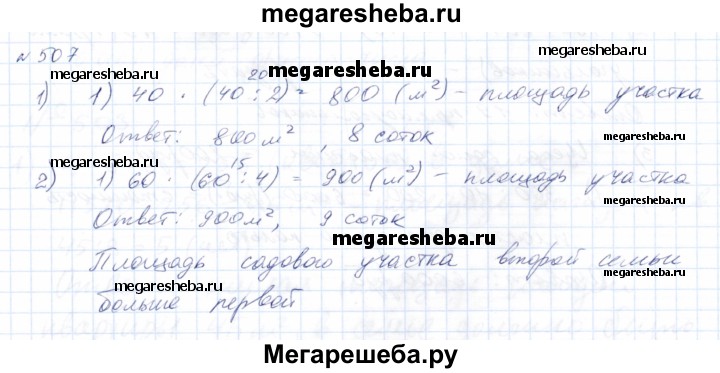 megaresheba.ru
№ 507
megaresheba.ru
megaresheba.ru
20
megaresheba.ru
1) 1) 40 · (40 : 2) = 800 (м²) – площадь участка
megaresheba.ru
Ответ: 800 м², 8 соток
megaresheba.ru
15
2) 1) 60 · (60 : 4) = 900 (м²) – площадь участка
megaresheba.ru
Ответ: 900 м², 9 соток
megaresheba.ru
Площадь садового участка второй семьи
megaresheba.ru
megaresheba.ru
больше первой
Мегарешеба.ру